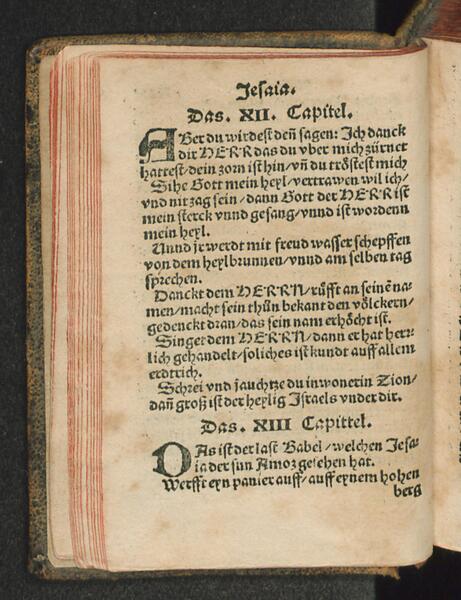 Jesaia.
Das. XII. Capitel.
ABer du wirdest deñ sagen: Ich danck
dir HERR das du vber mich zürnet
hattest/dein zorn ist hin/vñ du tröstest mich
Sihe Gott mein heyl/vertrawen wil ich/
vnd nit zag sein/dann Gott der HERR ist
mein sterck vnnd gesang/vnnd ist wordenn
mein heyl.
Vnnd jr werdt mit freud wasser schepffen
von dem heylbrunnen/vnnd am selben tag
sprechen.
Danckt dem HERRN/rüfft an seinē na-
men/macht sein thůn bekant den völckern/
gedenckt dran/das sein nam erhöcht ist.
Singet dem HERRN/dann er hat herr-
lich gehandelt/soliches ist kundt auff allem
erdtrich.
Schrei vnd jauchtze du inwonerin Zion/
dañ groß ist der heylig Israels vnder dir.
Das. XIII Capittel.
DAs ist der last Babel/welchen Jesa-
ia der sun Amoz gesehen hat.
Werfft eyn panier auff/auff eynem hohen
berg